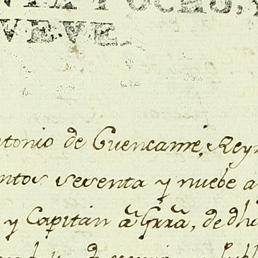 NTA Y OCHO, Y
NVEVE
ntonio de Cuencamé, Reyn
entos sesenta y nuebe a
y Capitan â Grrâ, de dho